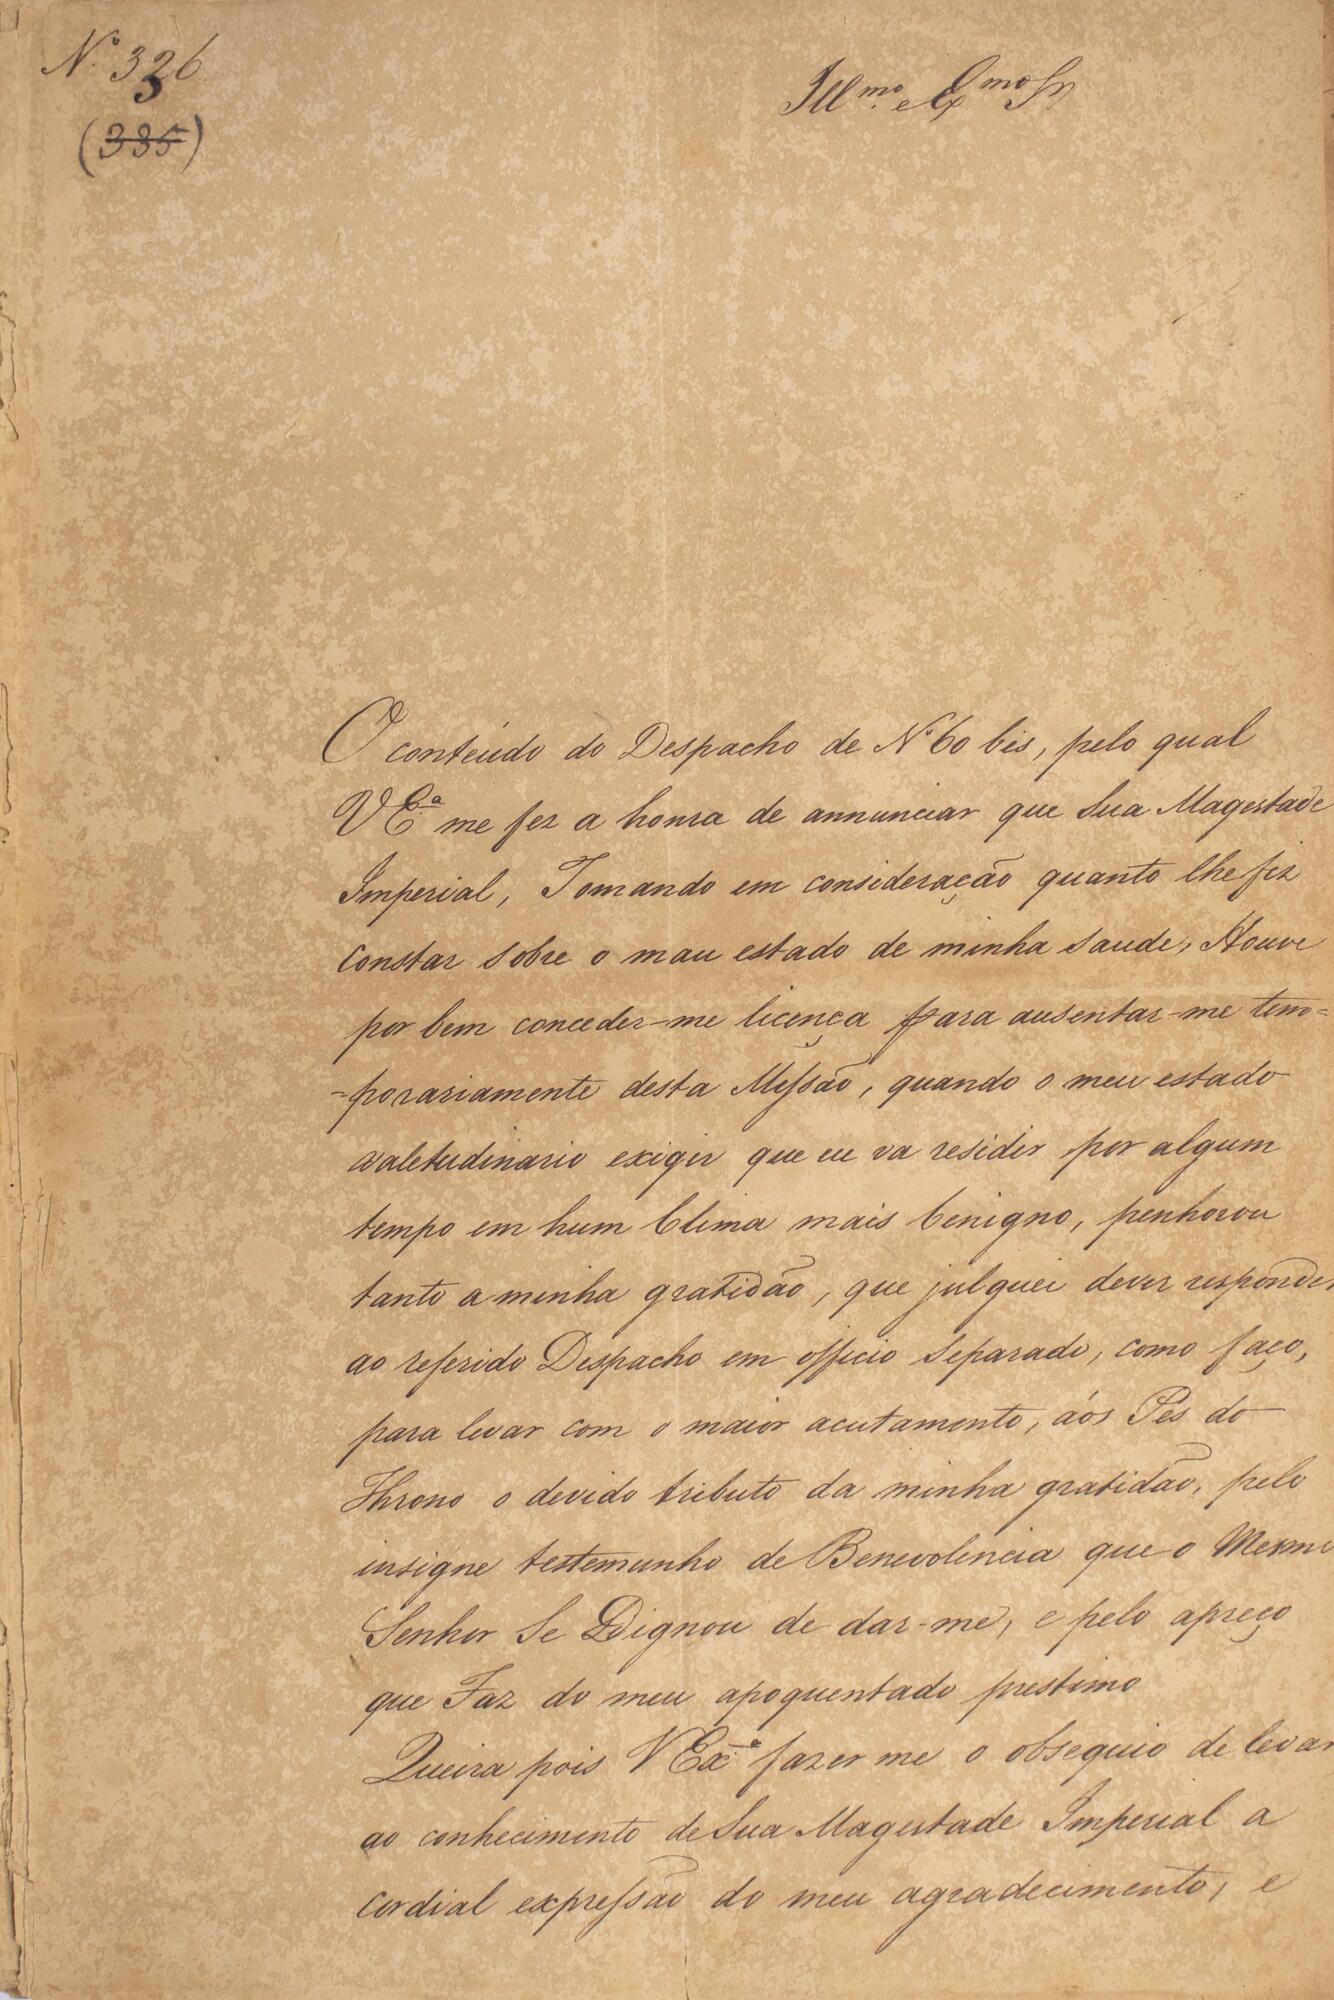 Nº 326
3
(335)
Illmo. e Exmo Sr
O conteúdo do Despacho de Nº 60 bis, pelo qual
V Eª. me fez a honra de annunciar que Sua Magestade
Imperial, Tomando em consideração quanto lhe fiz
constar sobre o mau estado de minha saude, Houve
por bem conceder-me licença para ausentar-me tem=
=porariamente desta Missão, quando o meu estado
valetudinario exigir que eu va residir por algum
tempo em hum Clima mais benigno, penhorou
tanto a minha gratidão, que julguei dever responder
ao referido Despacho em officio separado, como faço,
para levar com o maior acatamento, aós Pés do
Throno o devido tributo da minha gratidão, pelo
insigne testemunho de Benevolencia que o Mesmo
Senhor Se Dignou de dar-me, e pelo apreço
que Faz do meu apoquentado prestimo
Queira pois V Exª. fazer me o obsequio de levar
ao conhecimento de Sua Magestade Imperial a
cordial expressão do meu agradecimento, e